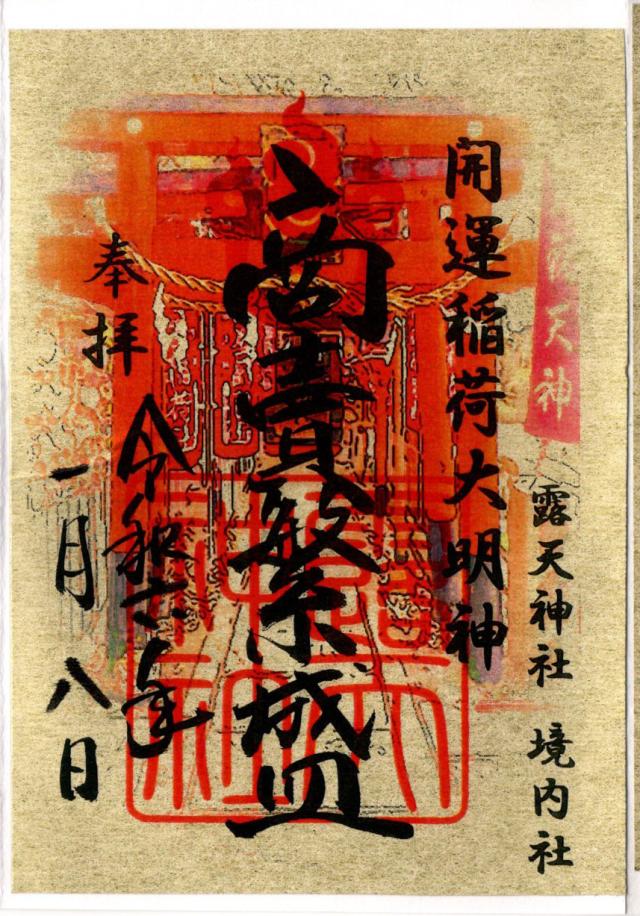 天神
露天神社 境内社
開運稲荷大明神
商賣繁盛
奉拝
令和六年
一月八日